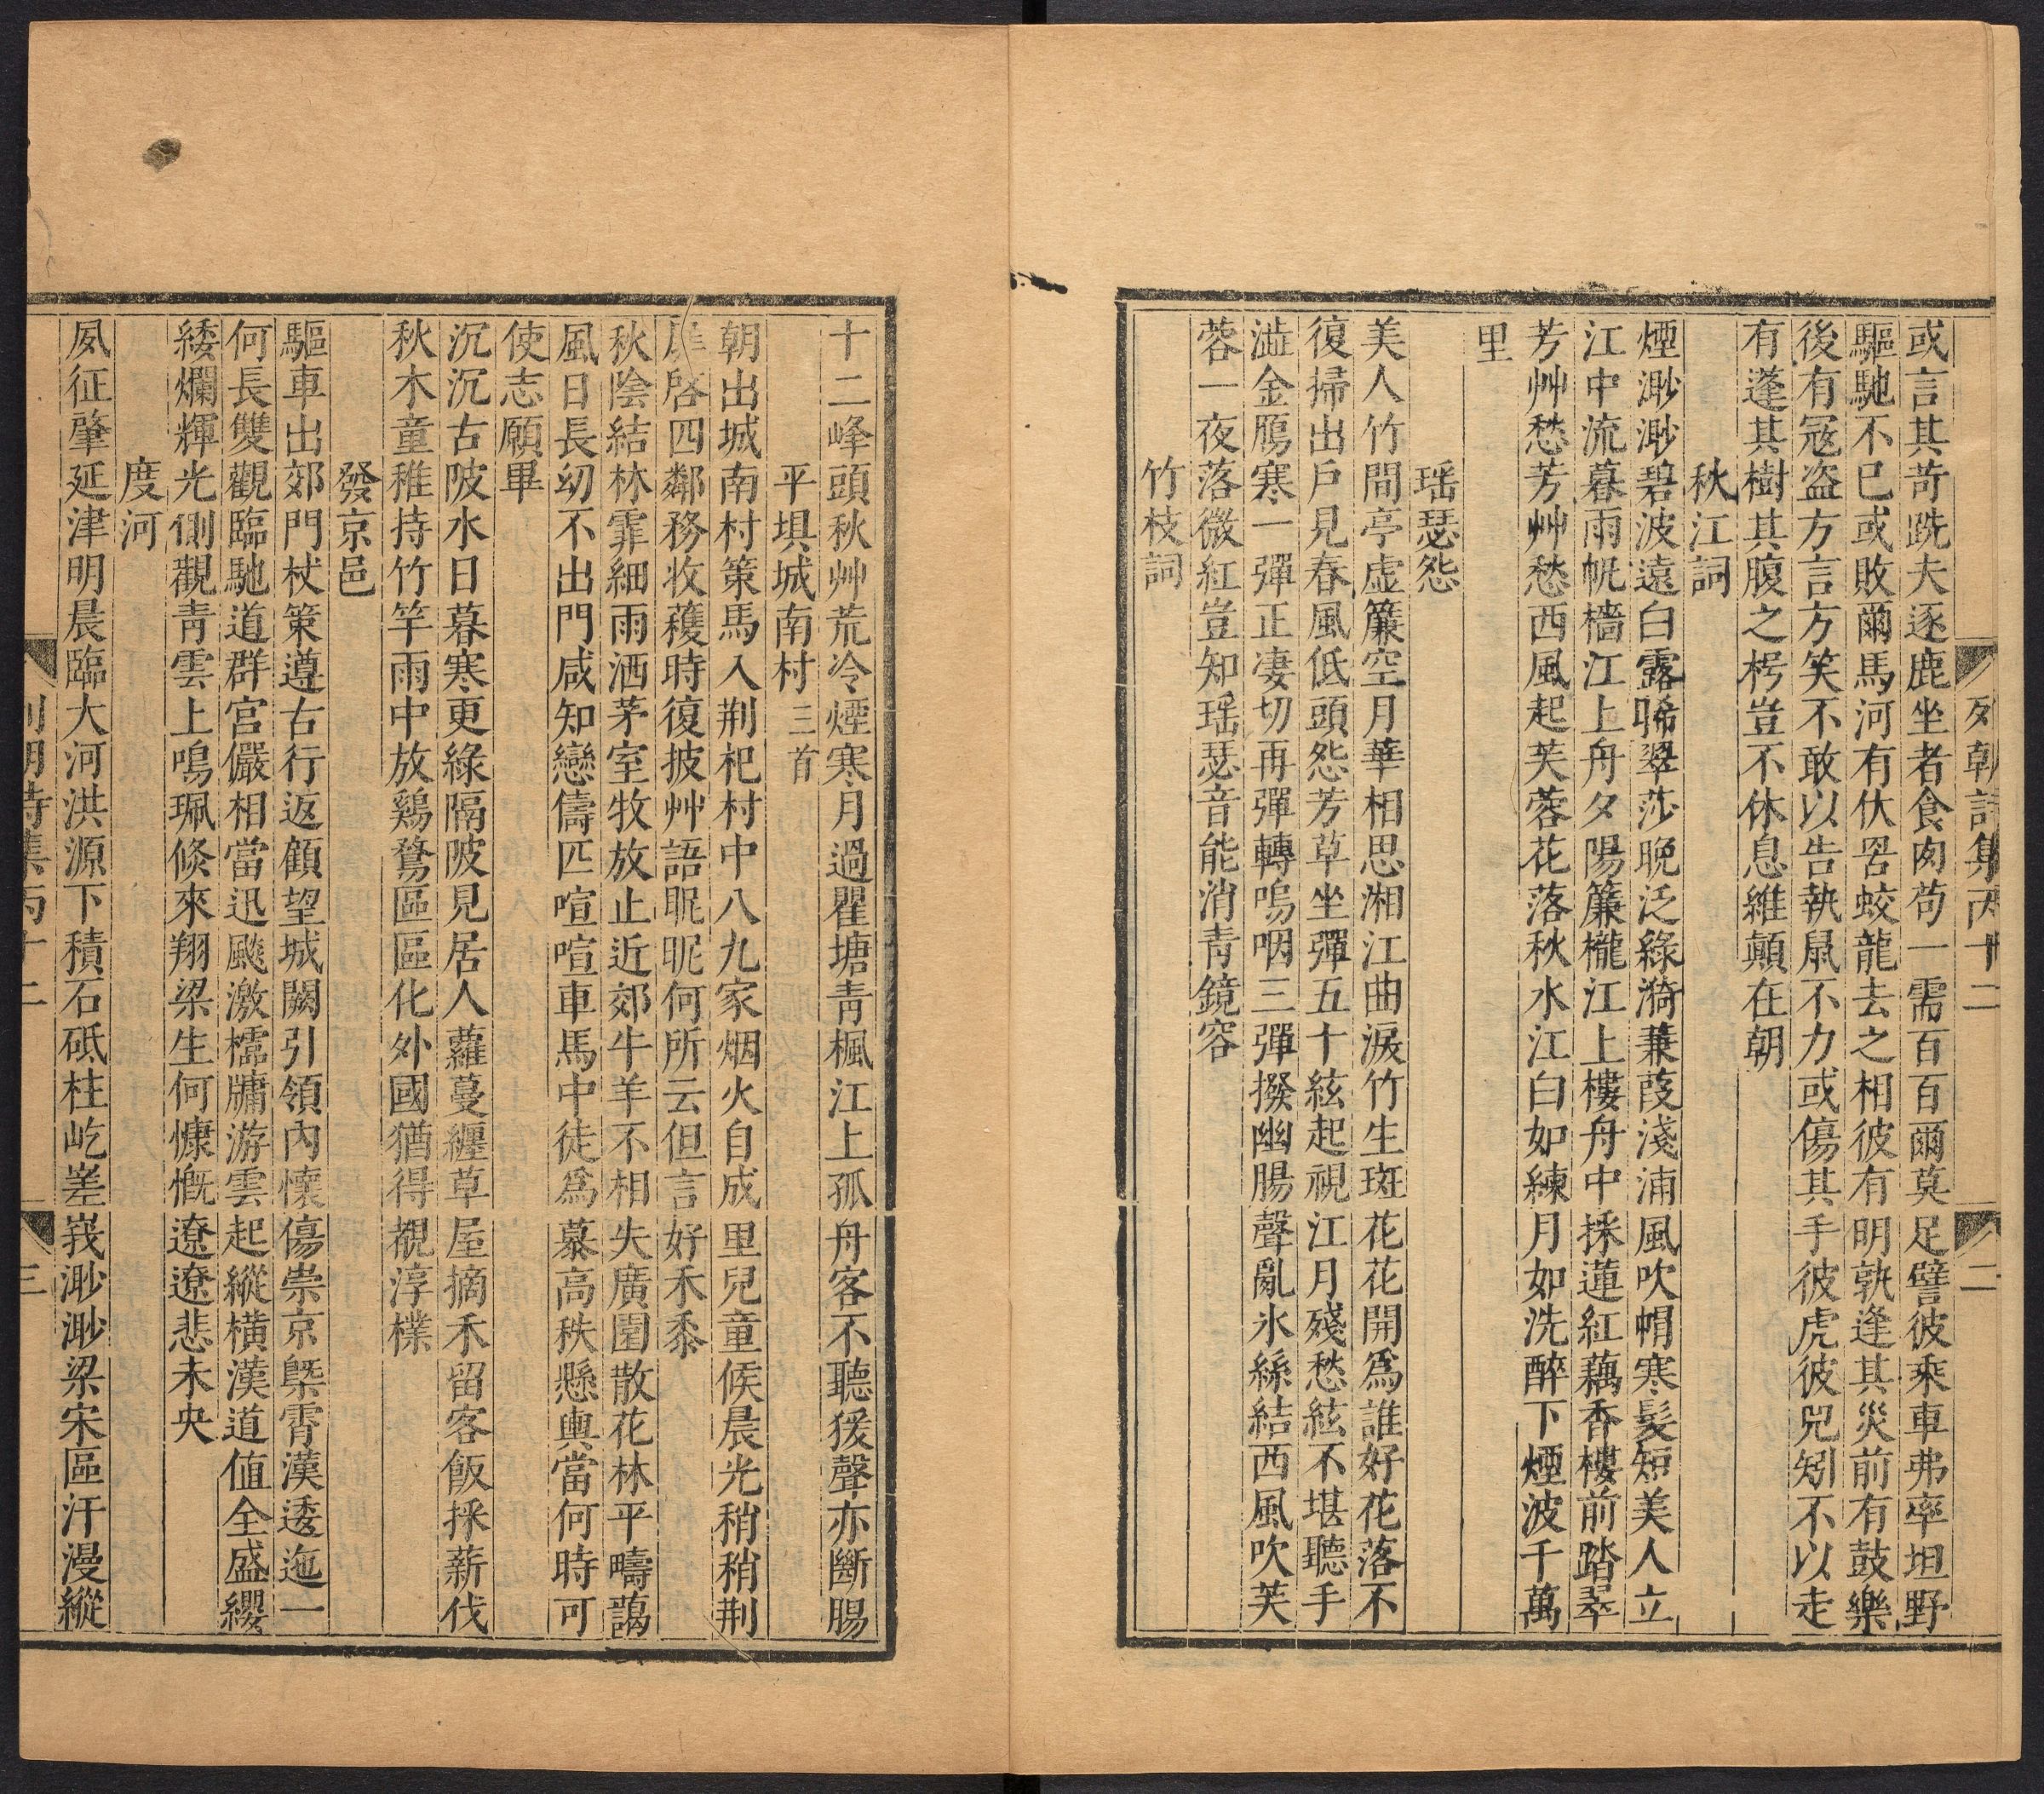 列朝詩集丙十二
二
或言其苛跣夫逐鹿坐者食肉苟一需百百爾莫足譬彼乘車弗率坦野
驅馳不已或敗爾馬河有伏罟蛟龍去之相彼有明孰逢其災前有鼓樂
後有冦盗方言方笑不敢以告執䑕不力或傷其手彼虎彼兕矧不以走
有蓬其樹其腹之枵豈不休息維顛在朝
秋江詞
煙渺渺碧波遠白露晞翠莎晚泛綠漪蒹葭淺浦風吹帽寒髮短美人立
江中流暮雨帆檣江上舟夕陽簾櫳江上樓舟中採蓮紅藕香樓前踏翠
芳艸愁芳艸愁西風起芙蓉花落秋水江白如練月如洗醉下煙波千萬
里
瑶瑟怨
美人竹間亭虛簾空月華相思湘江曲淚竹生斑花花開爲誰好花落不
復掃出戶見春風低頭怨芳草坐彈五十絃起視江月殘愁絃不堪聽手
澁金鴈寒一彈正凄切再彈轉嗚咽三彈撥幽腸聲亂氷絲結西風吹芙
蓉一夜落微紅豈知瑶瑟音能消青鏡容
竹枝詞
十二峰頭秋艸荒冷煙寒月過瞿塘青楓江上孤舟客不聽猨聲亦斷腸
平堽城南村三首
朝出城南村策馬入荆杞村中八九家烟火自成里兒童候晨光稍稍荆
扉啓四鄰務收穫時復披艸語眤眤何所云但言好禾黍
秋陰結林霏細雨洒茅室牧放止近郊牛羊不相失廣園散花林平疇藹
風日長幼不出門咸知戀儔匹喧喧車馬中徒爲慕高秩懸輿當何時可
使志願畢
沉沉古陂水日暮寒更綠隔陂見居人蘿蔓纏草屋摘禾留客飯採薪伐
秋木童稚持竹竿雨中放鷄鶩區區化外國猶得覩淳樸
發京邑
驅車出郊門杖策遵古行返顧望城闕引領內懷傷崇京槩霄漢逶迤一
何長雙觀臨馳道群宮儼相當迅飈激檽牗游雲起縱橫漢道值全盛纓
綾爛輝光側觀青雲上鳴珮倐來翔梁生何慷慨遼遼悲未央
度河
夙征肇延津明晨臨大河洪源下積石砥柱屹嵳峩渺渺梁宋區汗漫縱
列朝詩集丙十二
三